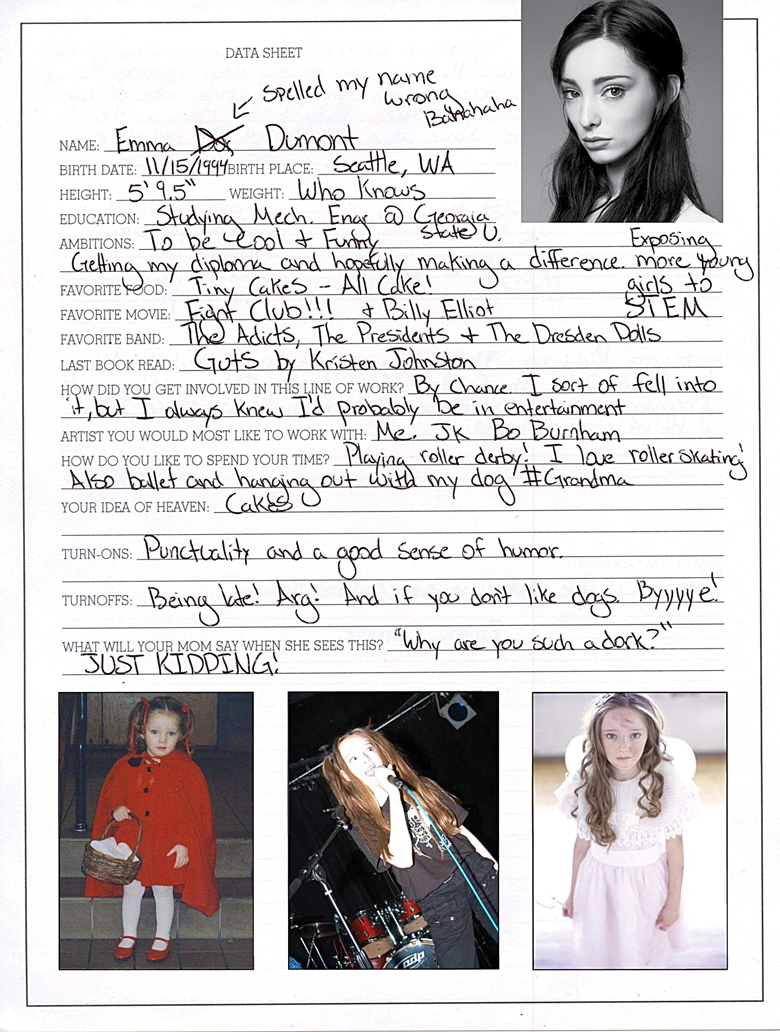 DATA SHEET
spelled my name
wrong
Bahahaha
NAME: Emma Dumont
BIRTH DATE: 11/15/1994 BIRTH PLACE: Seattle, WA
HEIGHT: 5' 9.5" WEIGHT: Who Knows
EDUCATION: Studying Mech. Engr @ Georgia
State U.
AMBITIONS: To be Cool & Funny
Getting my diploma and hopefully making a difference. Exposing
more young
girls to
STEM
FAVORITE FOOD: Tiny Cakes - All Cake!
FAVORITE MOVIE: Fight Club!!! & Billy Elliot
FAVORITE BAND: The Adicts, The Presidents & The Dresden Dolls
LAST BOOK READ: Guts by Kristen Johnston
HOW DID YOU GET INVOLVED IN THIS LINE OF WORK? By Chance. I sort of fell into
it, but I always knew I'd probably be in entertainment
ARTIST YOU WOULD MOST LIKE TO WORK WITH: Me. JK Bo Burnham
HOW DO YOU LIKE TO SPEND YOUR TIME? Playing roller derby! I love roller skating!
Also ballet and hanging out with my dog #Grandma
YOUR IDEA OF HEAVEN: Cakes
TURN-ONS: Punctuality and a good sense of humor.
TURNOFFS: Being late! Arg! And if you don't like dogs. Byyyye!
WHAT WILL YOUR MOM SAY WHEN SHE SEES THIS? "Why are you such a dork?"
JUST KIDDING!
pdp